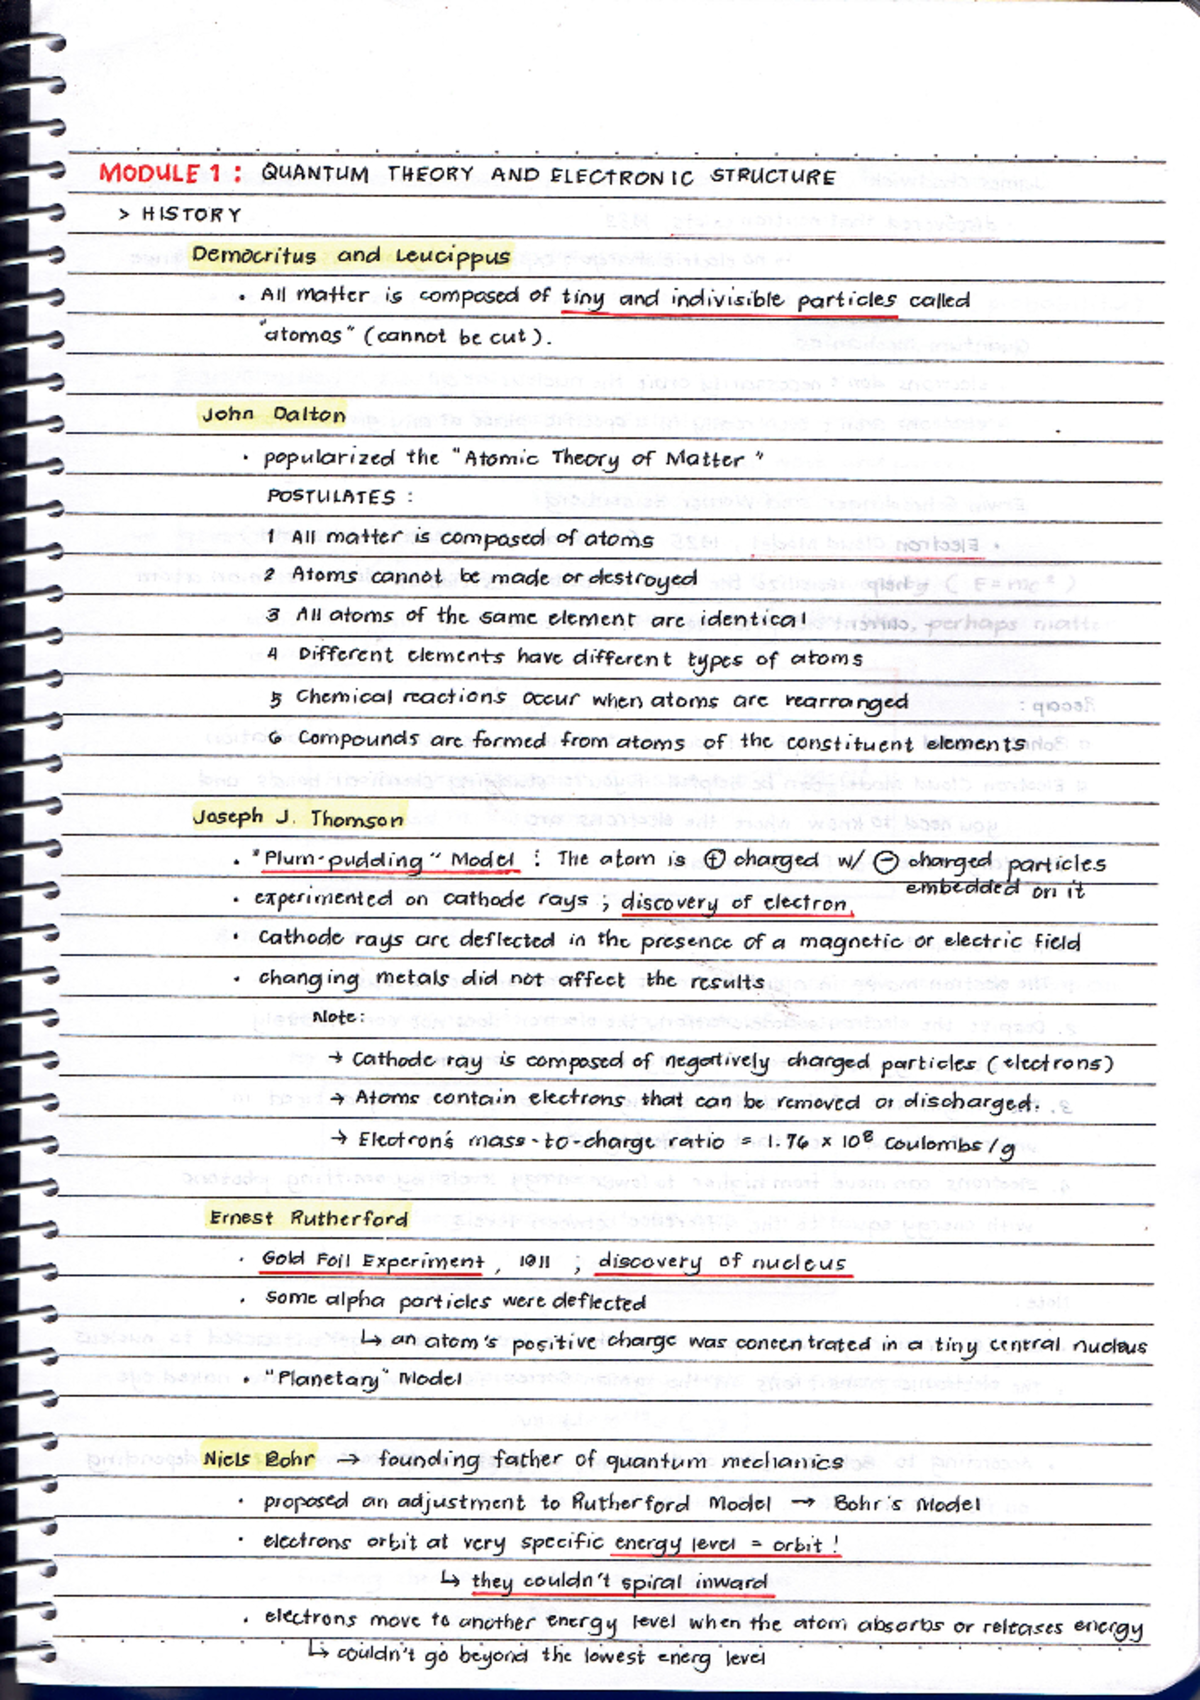 MODULE 1 : QUANTUM THEORY AND ELECTRONIC STRUCTURE
> HISTORY
Democritus and Leucippus
• All matter is composed of tiny and indivisible particles called
"atomos" (cannot be cut).
John Dalton
• popularized the "Atomic Theory of Matter"
POSTULATES :
1 All matter is composed of atoms
2 Atoms cannot be made or destroyed
3 All atoms of the same element are identical
4 Different elements have different types of atoms
5 Chemical reactions occur when atoms are rearranged
6 Compounds are formed from atoms of the constituent elements
Joseph J. Thomson
• "Plum-pudding" Model : The atom is ⊕ charged w/ ⊖ charged particles
embedded on it
• experimented on cathode rays ; discovery of electron
• Cathode rays are deflected in the presence of a magnetic or electric field
• changing metals did not affect the results
Note:
→ Cathode ray is composed of negatively charged particles (electrons)
→ Atoms contain electrons that can be removed or discharged.
→ Electron's mass-to-charge ratio = 1.76 x 10⁸ Coulombs/g
Ernest Rutherford
• Gold Foil Experiment , 1911 ; discovery of nucleus
• Some alpha particles were deflected
↳ an atom's positive charge was concentrated in a tiny central nucleus
• "Planetary" Model
Niels Bohr → founding father of quantum mechanics
• proposed an adjustment to Rutherford Model → Bohr's Model
• electrons orbit at very specific energy level = orbit !
↳ they couldn't spiral inward
• electrons move to another energy level when the atom absorbs or releases energy
↳ couldn't go beyond the lowest energ level